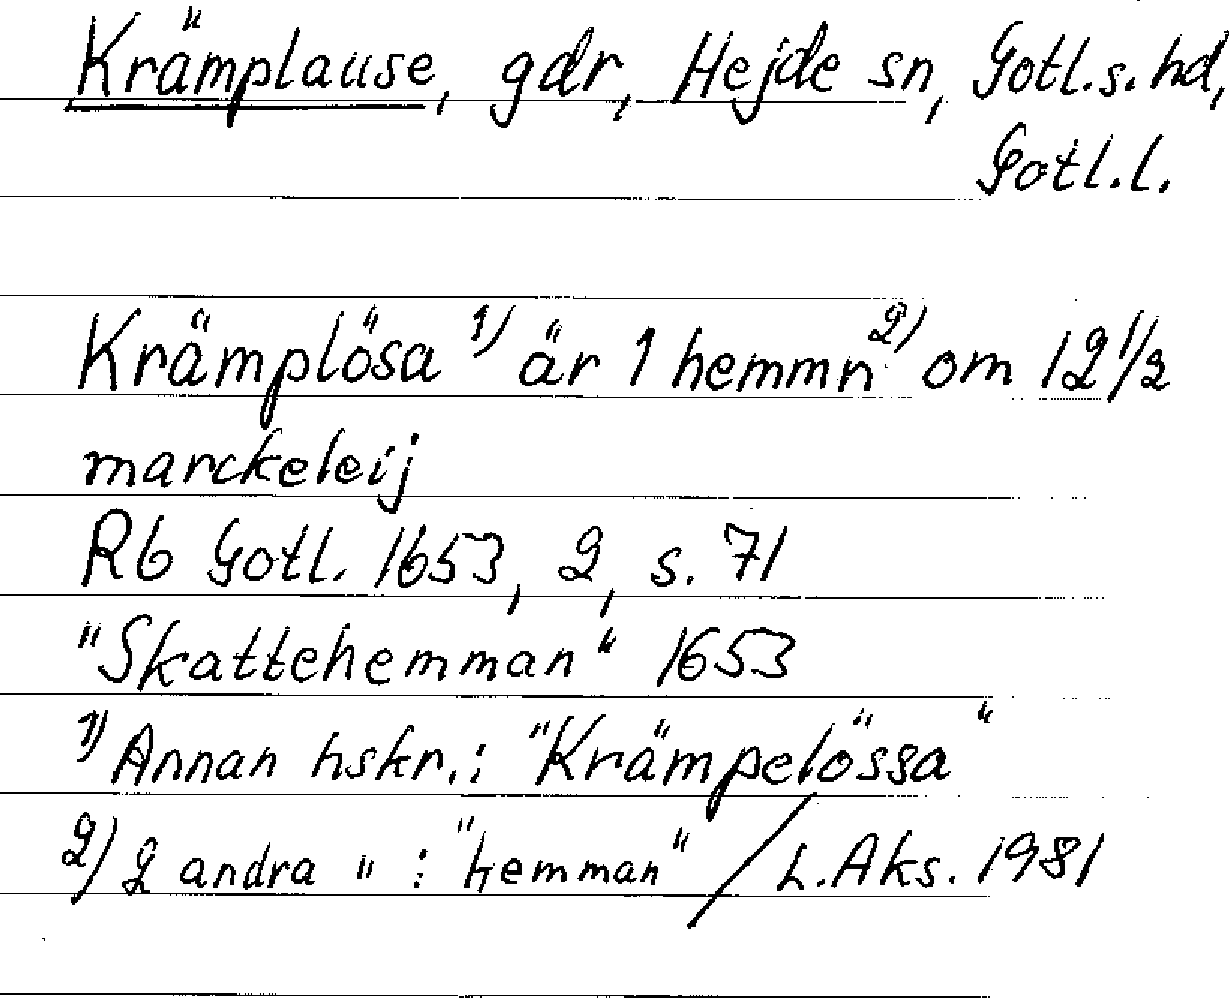 Krämplause, gdr, Hejde sn, Gotl.s. hd,
Gotl.l.
Krämplösa 1) är 1 hemmn 2) om 12 1/2
marckeleij
Rb Gotl. 1653, 2, s. 71
"Skattehemman" 1653
1) Annan hskr.: "Krämpelössa"
2) 2 andra " : "hemman" / L.Aks. 1981